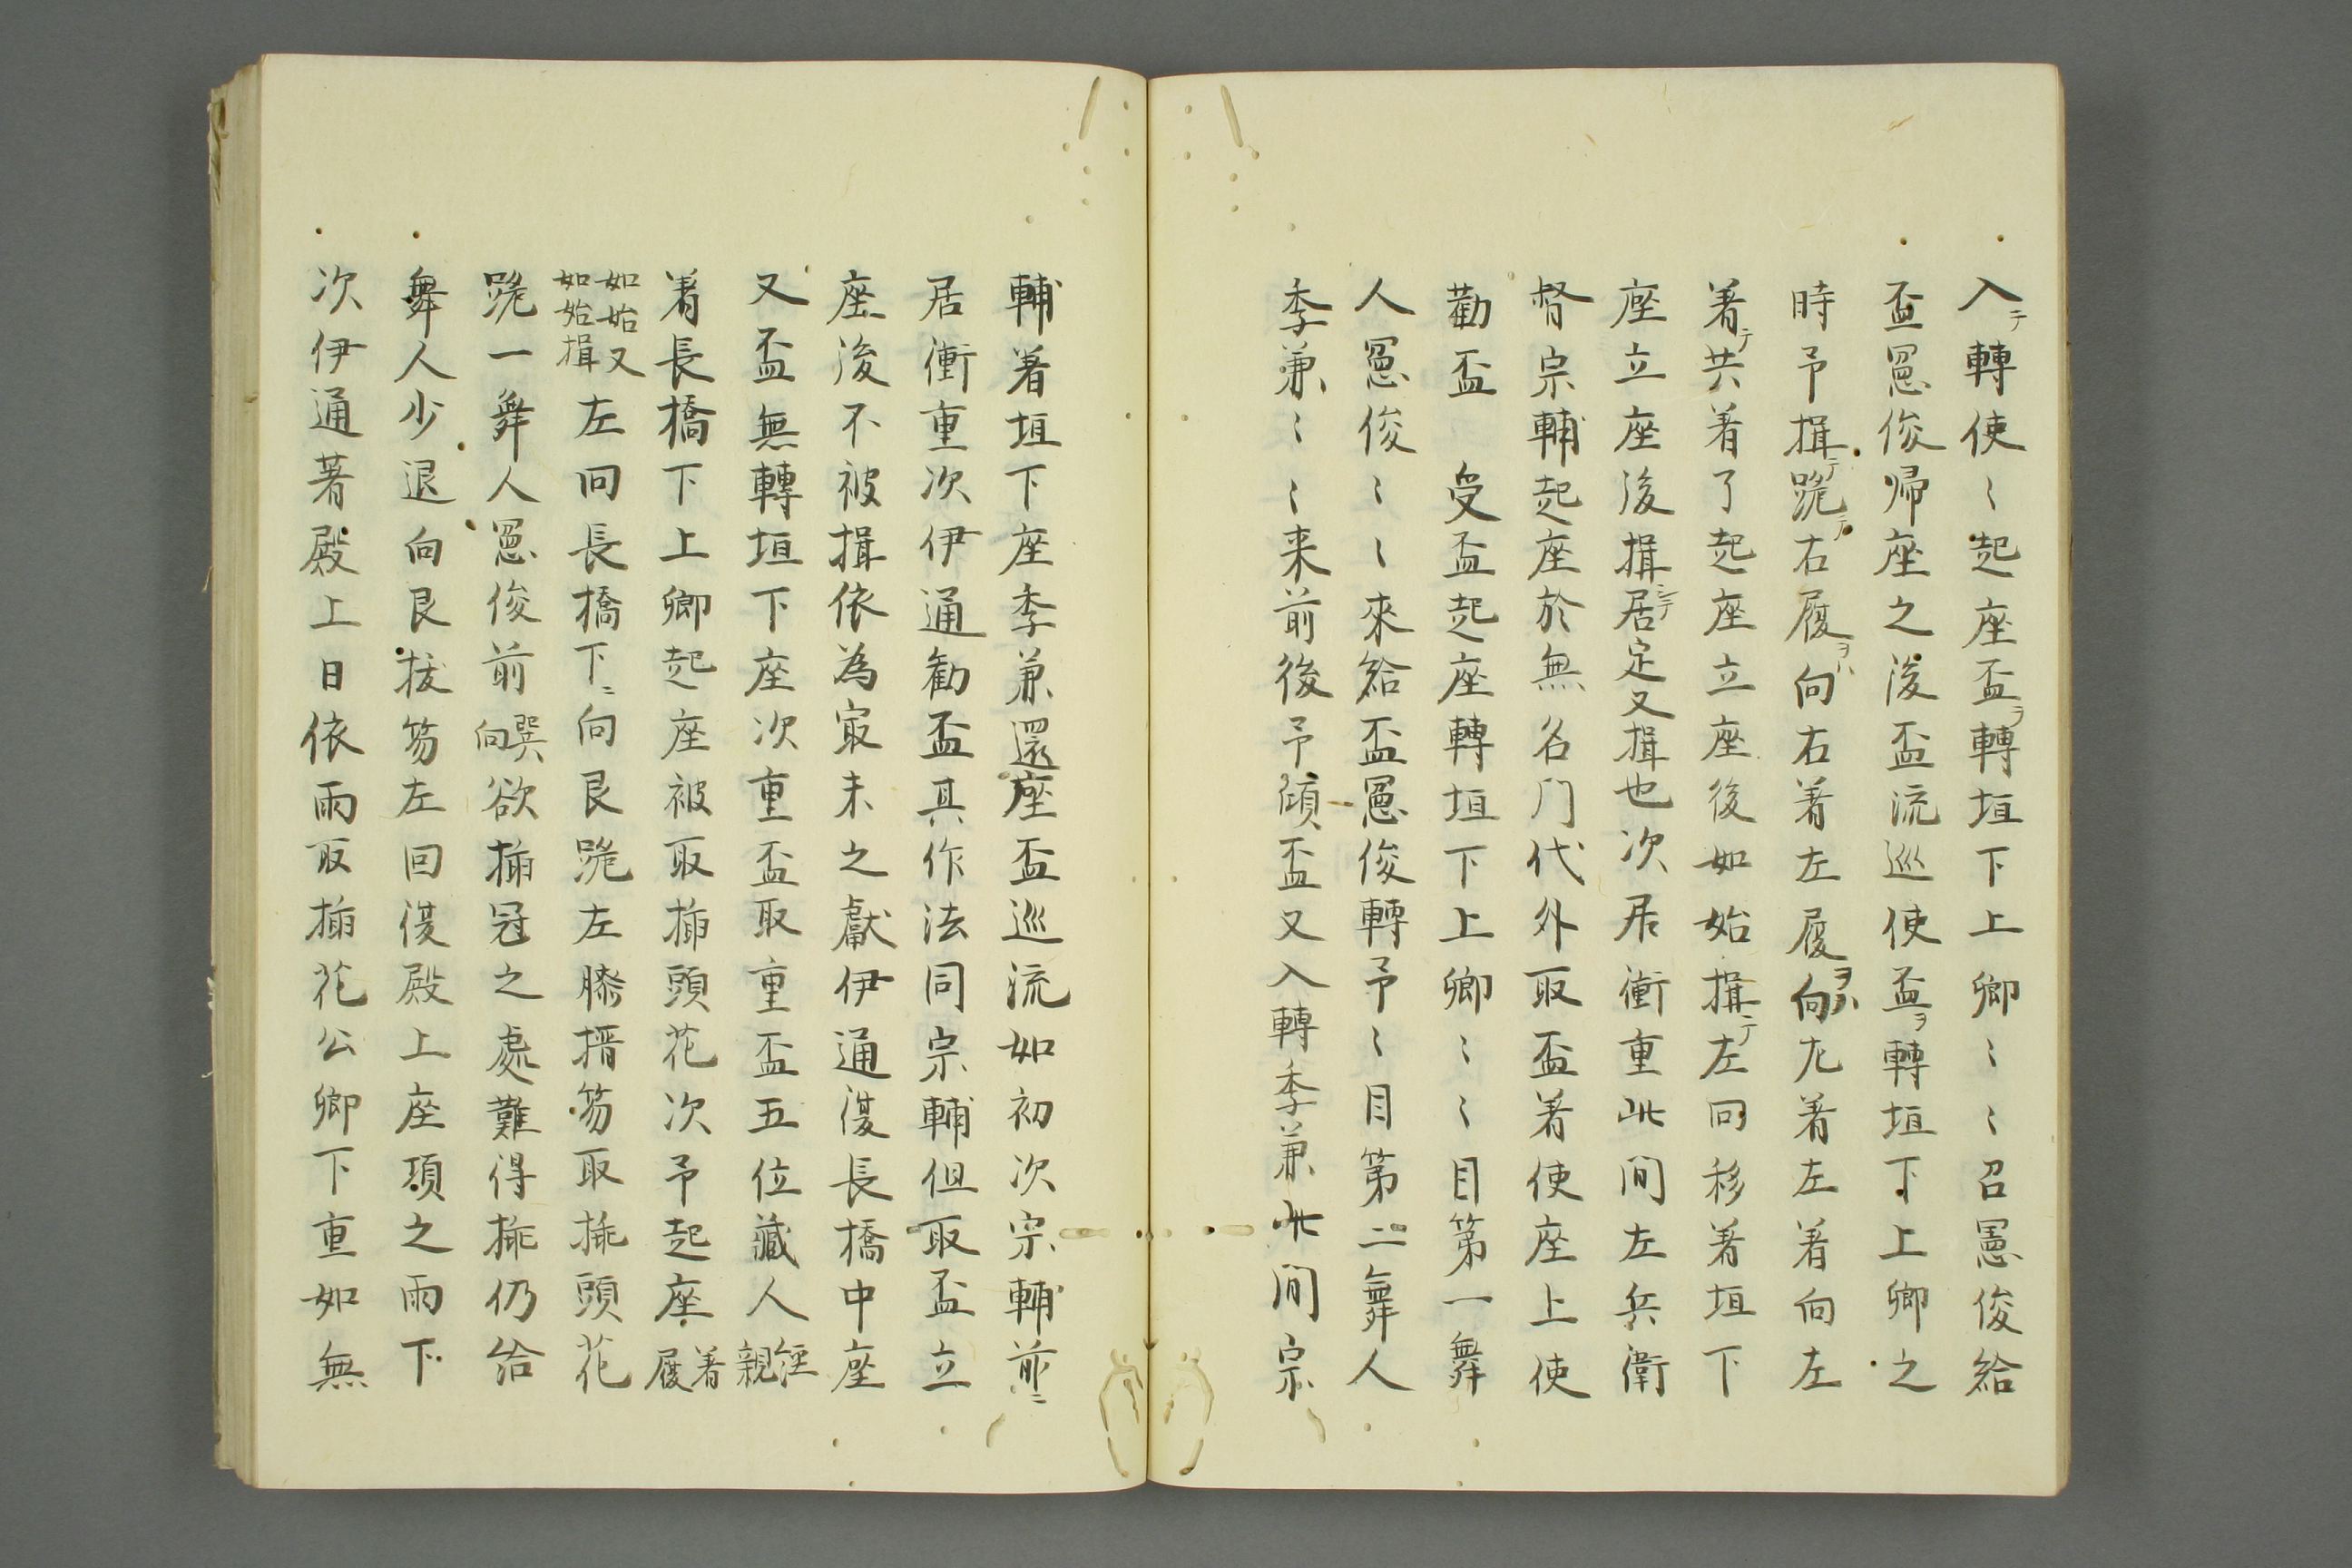 入テ轉使〻起座盃ヲ轉垣下上卿〻〻召憲俊給
盃憲俊帰座之後盃流巡使盃ヲ轉垣下上卿之
時予揖テ跪テ右履ヲハ向右著左履ヲハ向尢著左著向左
著テ共着了起座立座後如始揖テ左回移著垣下
座立座後揖シテ居定又揖也次居衝重此间左兵衛
督宗輔起座於無名门代外取盃着使座上使
勸盃 受盃起座轉垣下上卿〻〻目第一舞
人憲俊〻〻來給盃憲俊轉予〻目第二舞人
季兼〻〻来前後予傾盃又入轉季兼此间宗
輔著垣下座季兼還座盃巡流如初次宗輔前ニ
居衝重次伊通勧盃其作法同宗輔但取盃立
座後不被揖依為冣末之獻伊通復長橋中座
又盃無轉垣下座次重盃取重盃五位藏人經親
着長橋下上卿起座被取揷頭花次予起座著履
如始又如始揖左回長橋下ニ向艮跪左膝搢笏取揷頭花
跪一舞人憲俊前巽向欲揷冠之處難得揷仍給
舞人少退向艮拔笏左回復殿上座項之雨下
次伊通著殿上日依雨取揷花公卿下重如無